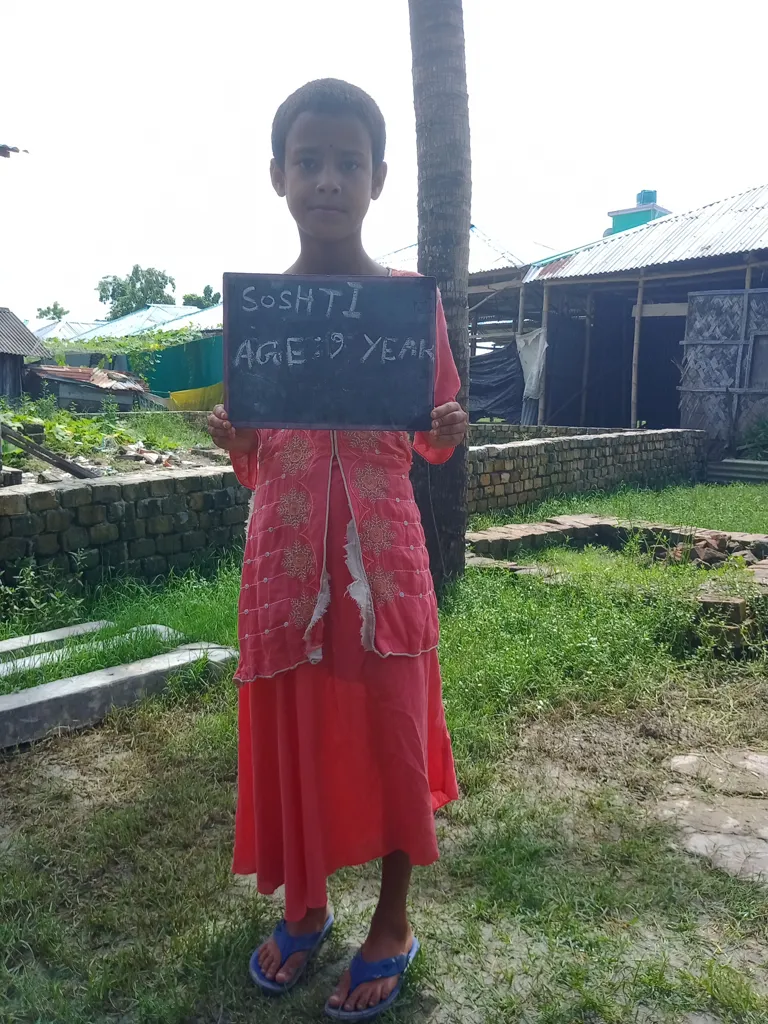 SOSHTI
AGE:9 YEAR